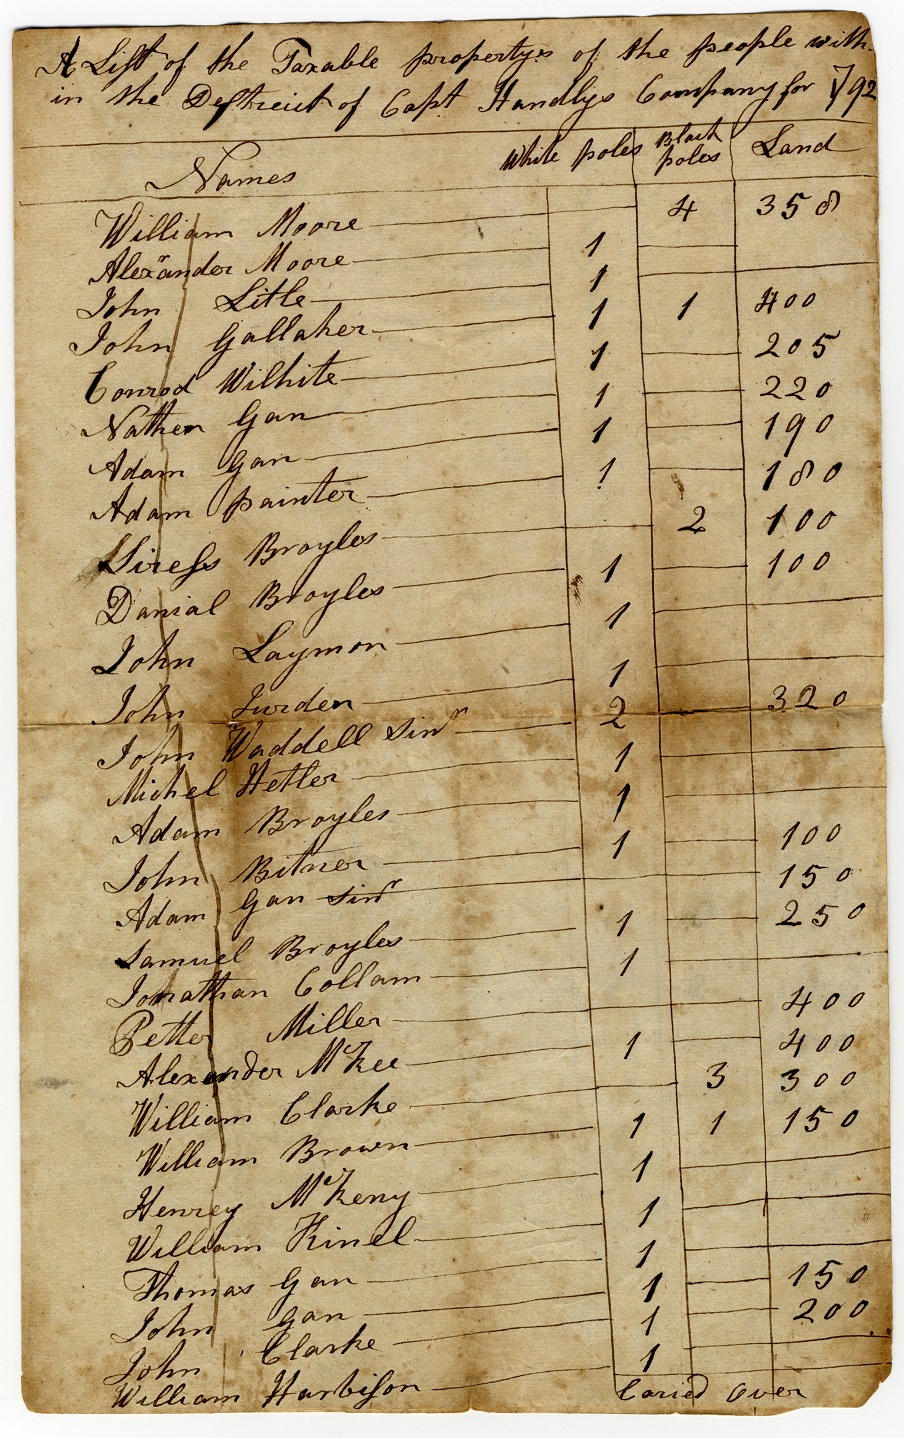 A List of the Taxable propertys of the people with
in the Destrict of Capt Handlys Company for 1792
Names White poles Black poles Land
William Moore 4 358
Alexander Moore 1
John Litle 1
John Gallaher 1 1 400
Conrod Wilhite 1 205
Nathen Gan 1 220
Adam Gan 1 190
Adam painter 1 180
Siress Broyles 2 100
Danial Broyles 1 100
John Laymon 1
John Jurden 1
John Waddell Sinr 2 320
Michel Hetler 1
Adam Broyles 1
John Bitner 1 100
Adam Gan Sinr 150
Samuel Broyles 1 250
Jonathan Collam 1
Petter Miller 400
Alexander McKee 1 400
William Clarke 3 300
William Brown 1 1 150
Henrey McKeny 1
William Kinel 1
Thomas Gan 1
John Gan 1 150
John Clarke 1 200
William Harbison 1
Caried Over